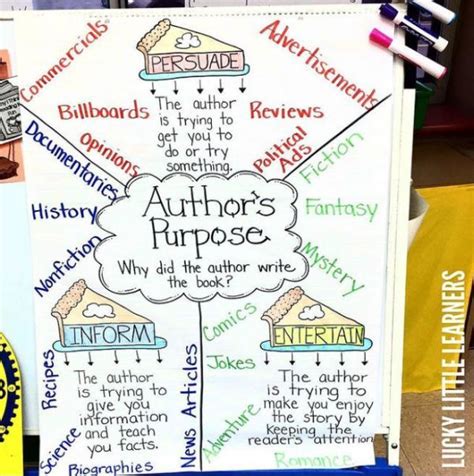 Commercials
PERSUADE
Advertisements
Billboards
The author
is trying to
get you to
do or try
something.
Reviews
Opinions
Political
Ads
Documentaries
History
Nonfiction
Author's
Purpose
Why did the author write
the book?
Fiction
Fantasy
Mystery
INFORM
Recipes
The author
is trying to
give you
information
and teach
you facts.
News Articles
Science
Biographies
Comics
ENTERTAIN
Jokes
The author
is trying to
make you enjoy
the story by
keeping the
reader's attention
Adventure
Romance
LUCKY LITTLE LEARNERS